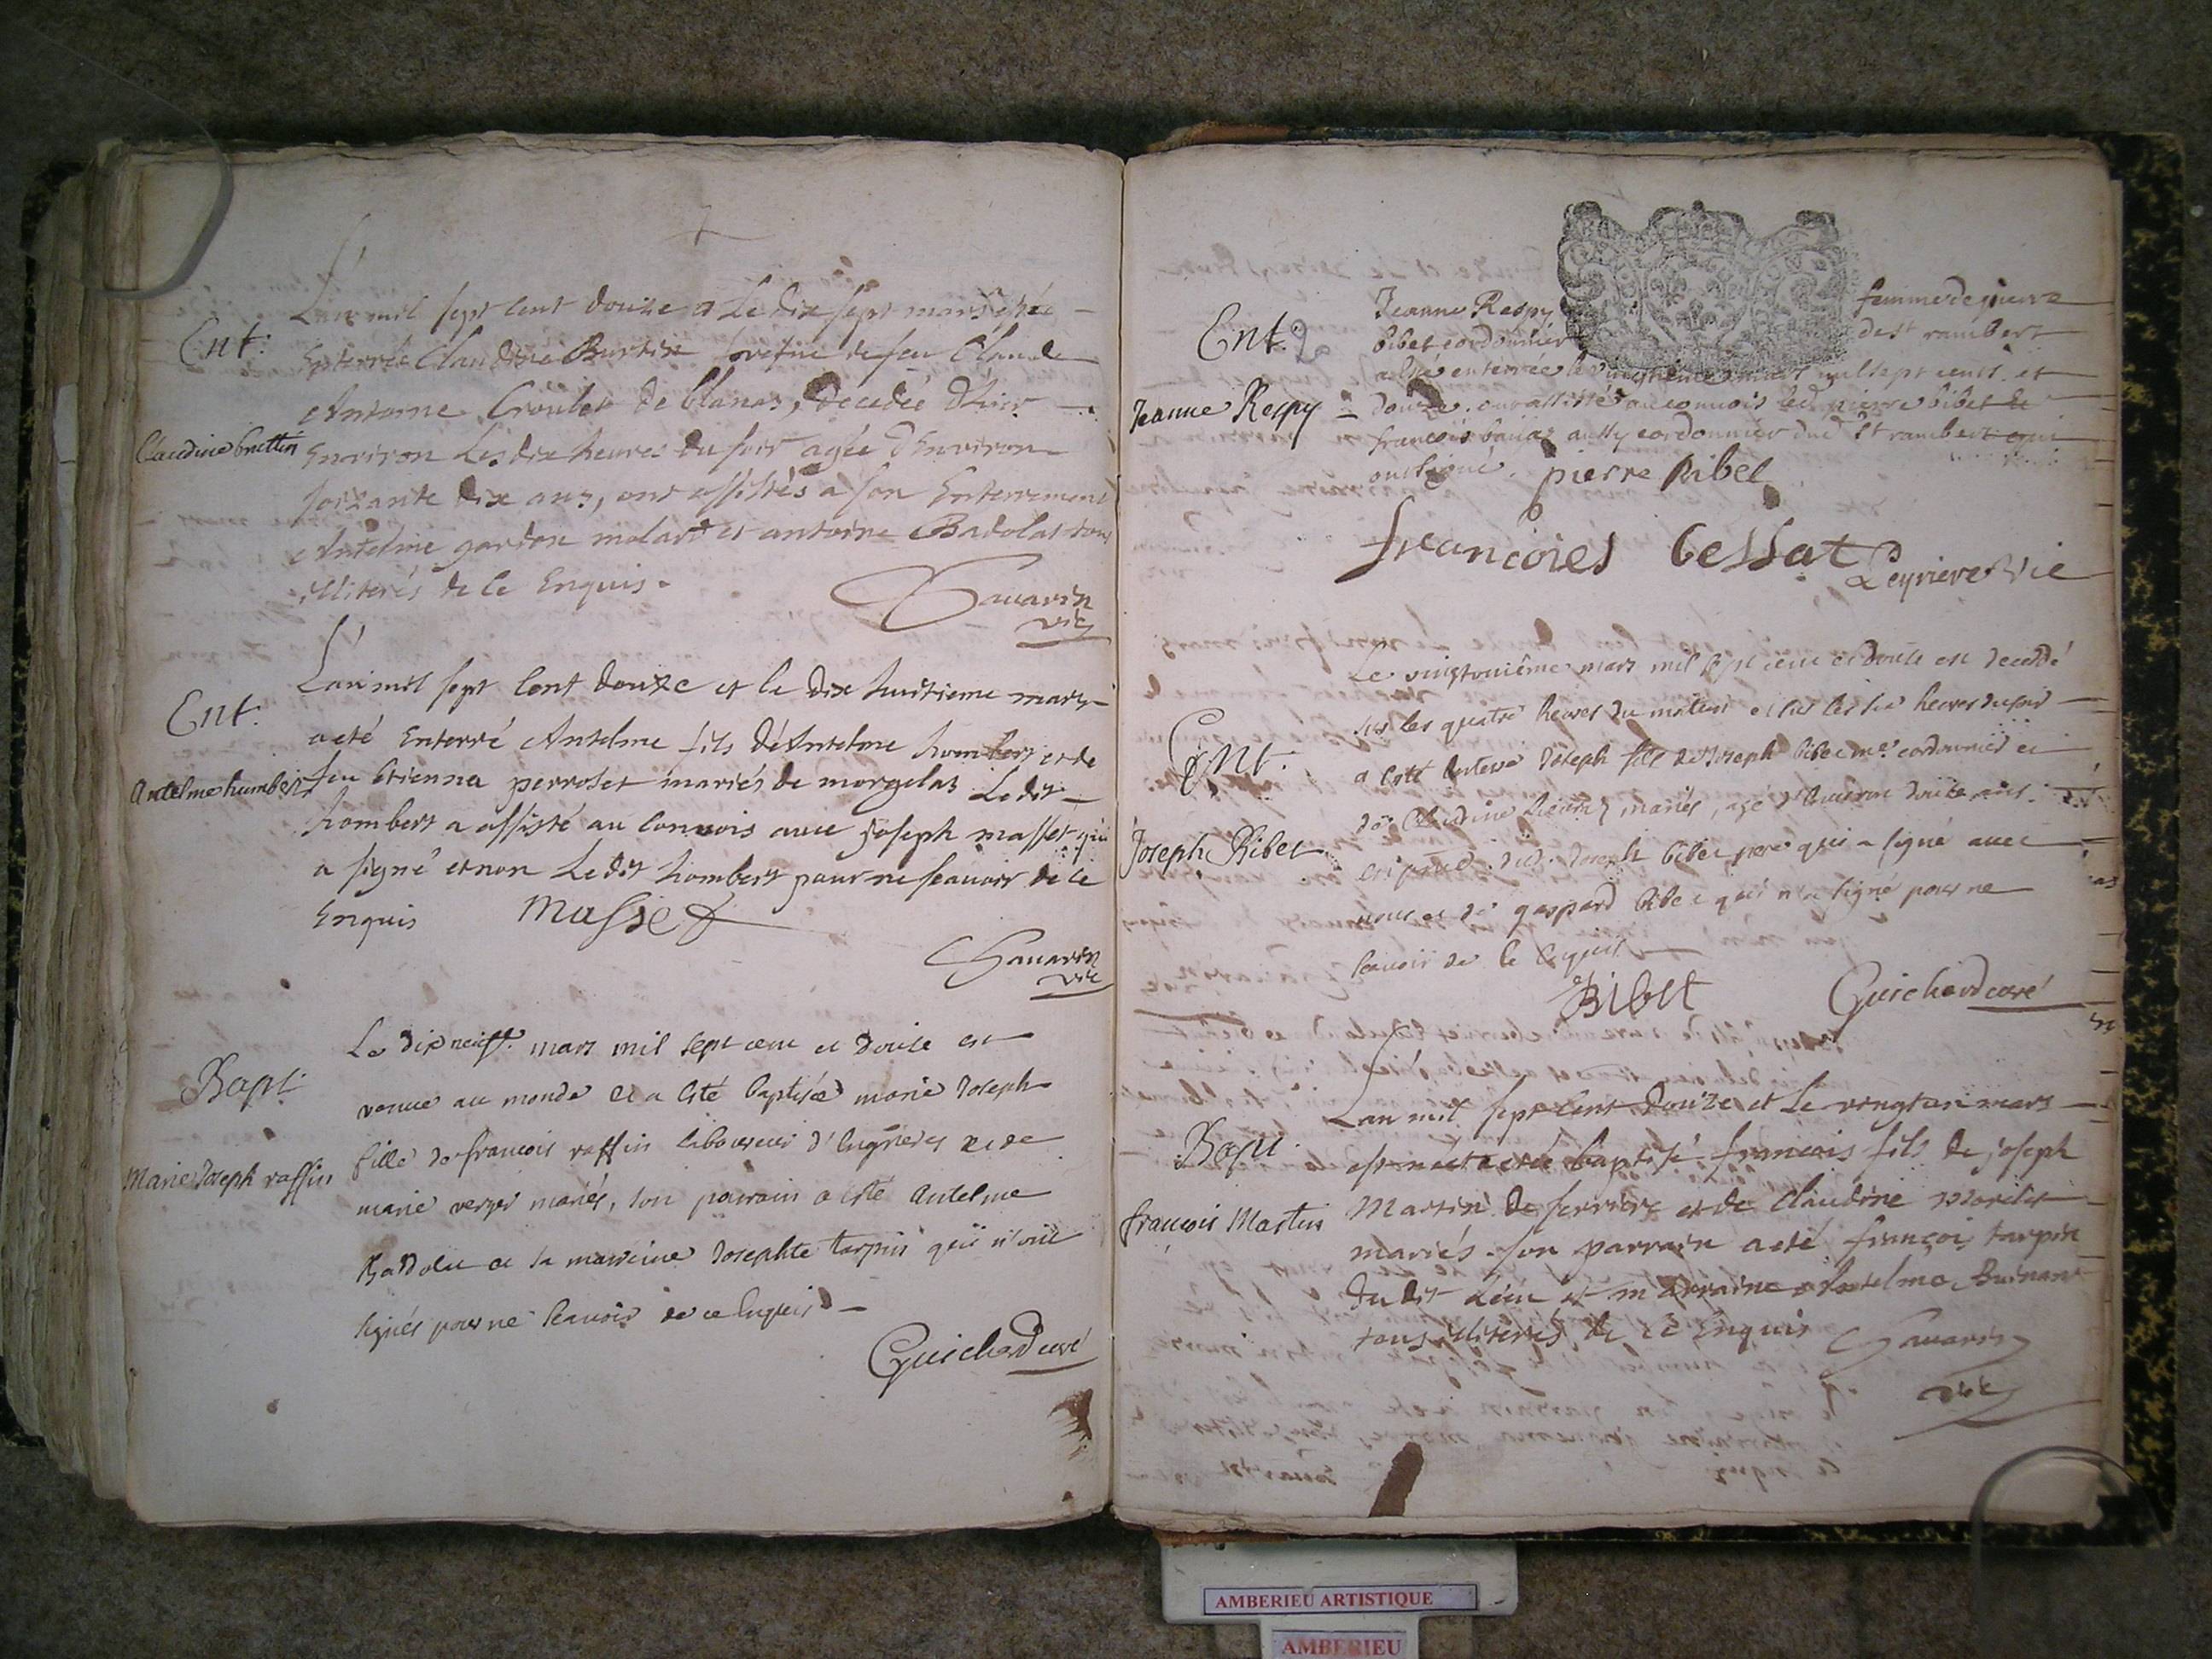 Ent.
L'an mil sept cent douze et le dix sept mars a esté
Enterrée Claudine Burtin de feu Claude
Antoine de blanas, decedée d'hier
Claudine brettin
Environ les dix heures du soir agée d'Environ
soixante dix ans, ont assistés a son Enterrement
Antelme gordon et antoine Badolat tous
illiterés de ce Enquis.
Sauarin
vic
Ent.
L'an mil sept cent douze et le dix huitieme mars
a eté Enterré Antelme fils d'Antelme humbert et de
Antelme humbert
feu Etienna perroset mariés de morgelas Ledit
humbert a assisté au convois avec joseph masset qui
a signé et non Ledit humbert pour ne scauoir de ce
Enquis
Masset
Sauarin
vic
Bapt.
Le dix neuff. mars mil sept cent et douze est
venue au monde et a esté baptisée marie Joseph
Marie Joseph raffin
fille de francois raffin laboureur et de
marie verger mariés, son parrain a esté antelme
Badolat et sa marreine Josephte tarpin qui n'ont
signés pour ne scauoir de ce Enquis
Guichard curé
Ent.
Jeanne Respy femme de pierre
bibet cordonnier de st rambert
a esté enterrée le vingtième mars mil sept cents et
Jeanne Respy
douze. ont assisté au conuois led. pierre bibet et
francois aussy cordonnier dud St rambert qui
ont signé.
pierre Bibet
francoies bessat
Leyriere Vic
Ent.
Le vingtunième mars mil sept cent et douze est decedé
sur les quatre heures du matin et sur les six heures du soir
a esté enterré Joseph fils de Joseph bibet me. cordonnier et
de Claudine mariés, agé d'enuiron douze ans.
Joseph Bibet
en pnce. dud. Joseph bibet pere qui a signé avec
nous et de gaspard bibet qui n'a signé pour ne
scauoir de ce enquis
Bibet
Guichard curé
Bapt.
L'an mil sept cent douze et le vingt un mars
est né et a eté baptisé francois fils de joseph
francois Martin
Martin de ferriere et de Claudine
mariés son parrain a eté françois tarpin
du dit Lieu et marraine Antelma
tous illiterés de ce Enquis
Sauarin
vic
AMBERIEU ARTISTIQUE
AMBERIEU